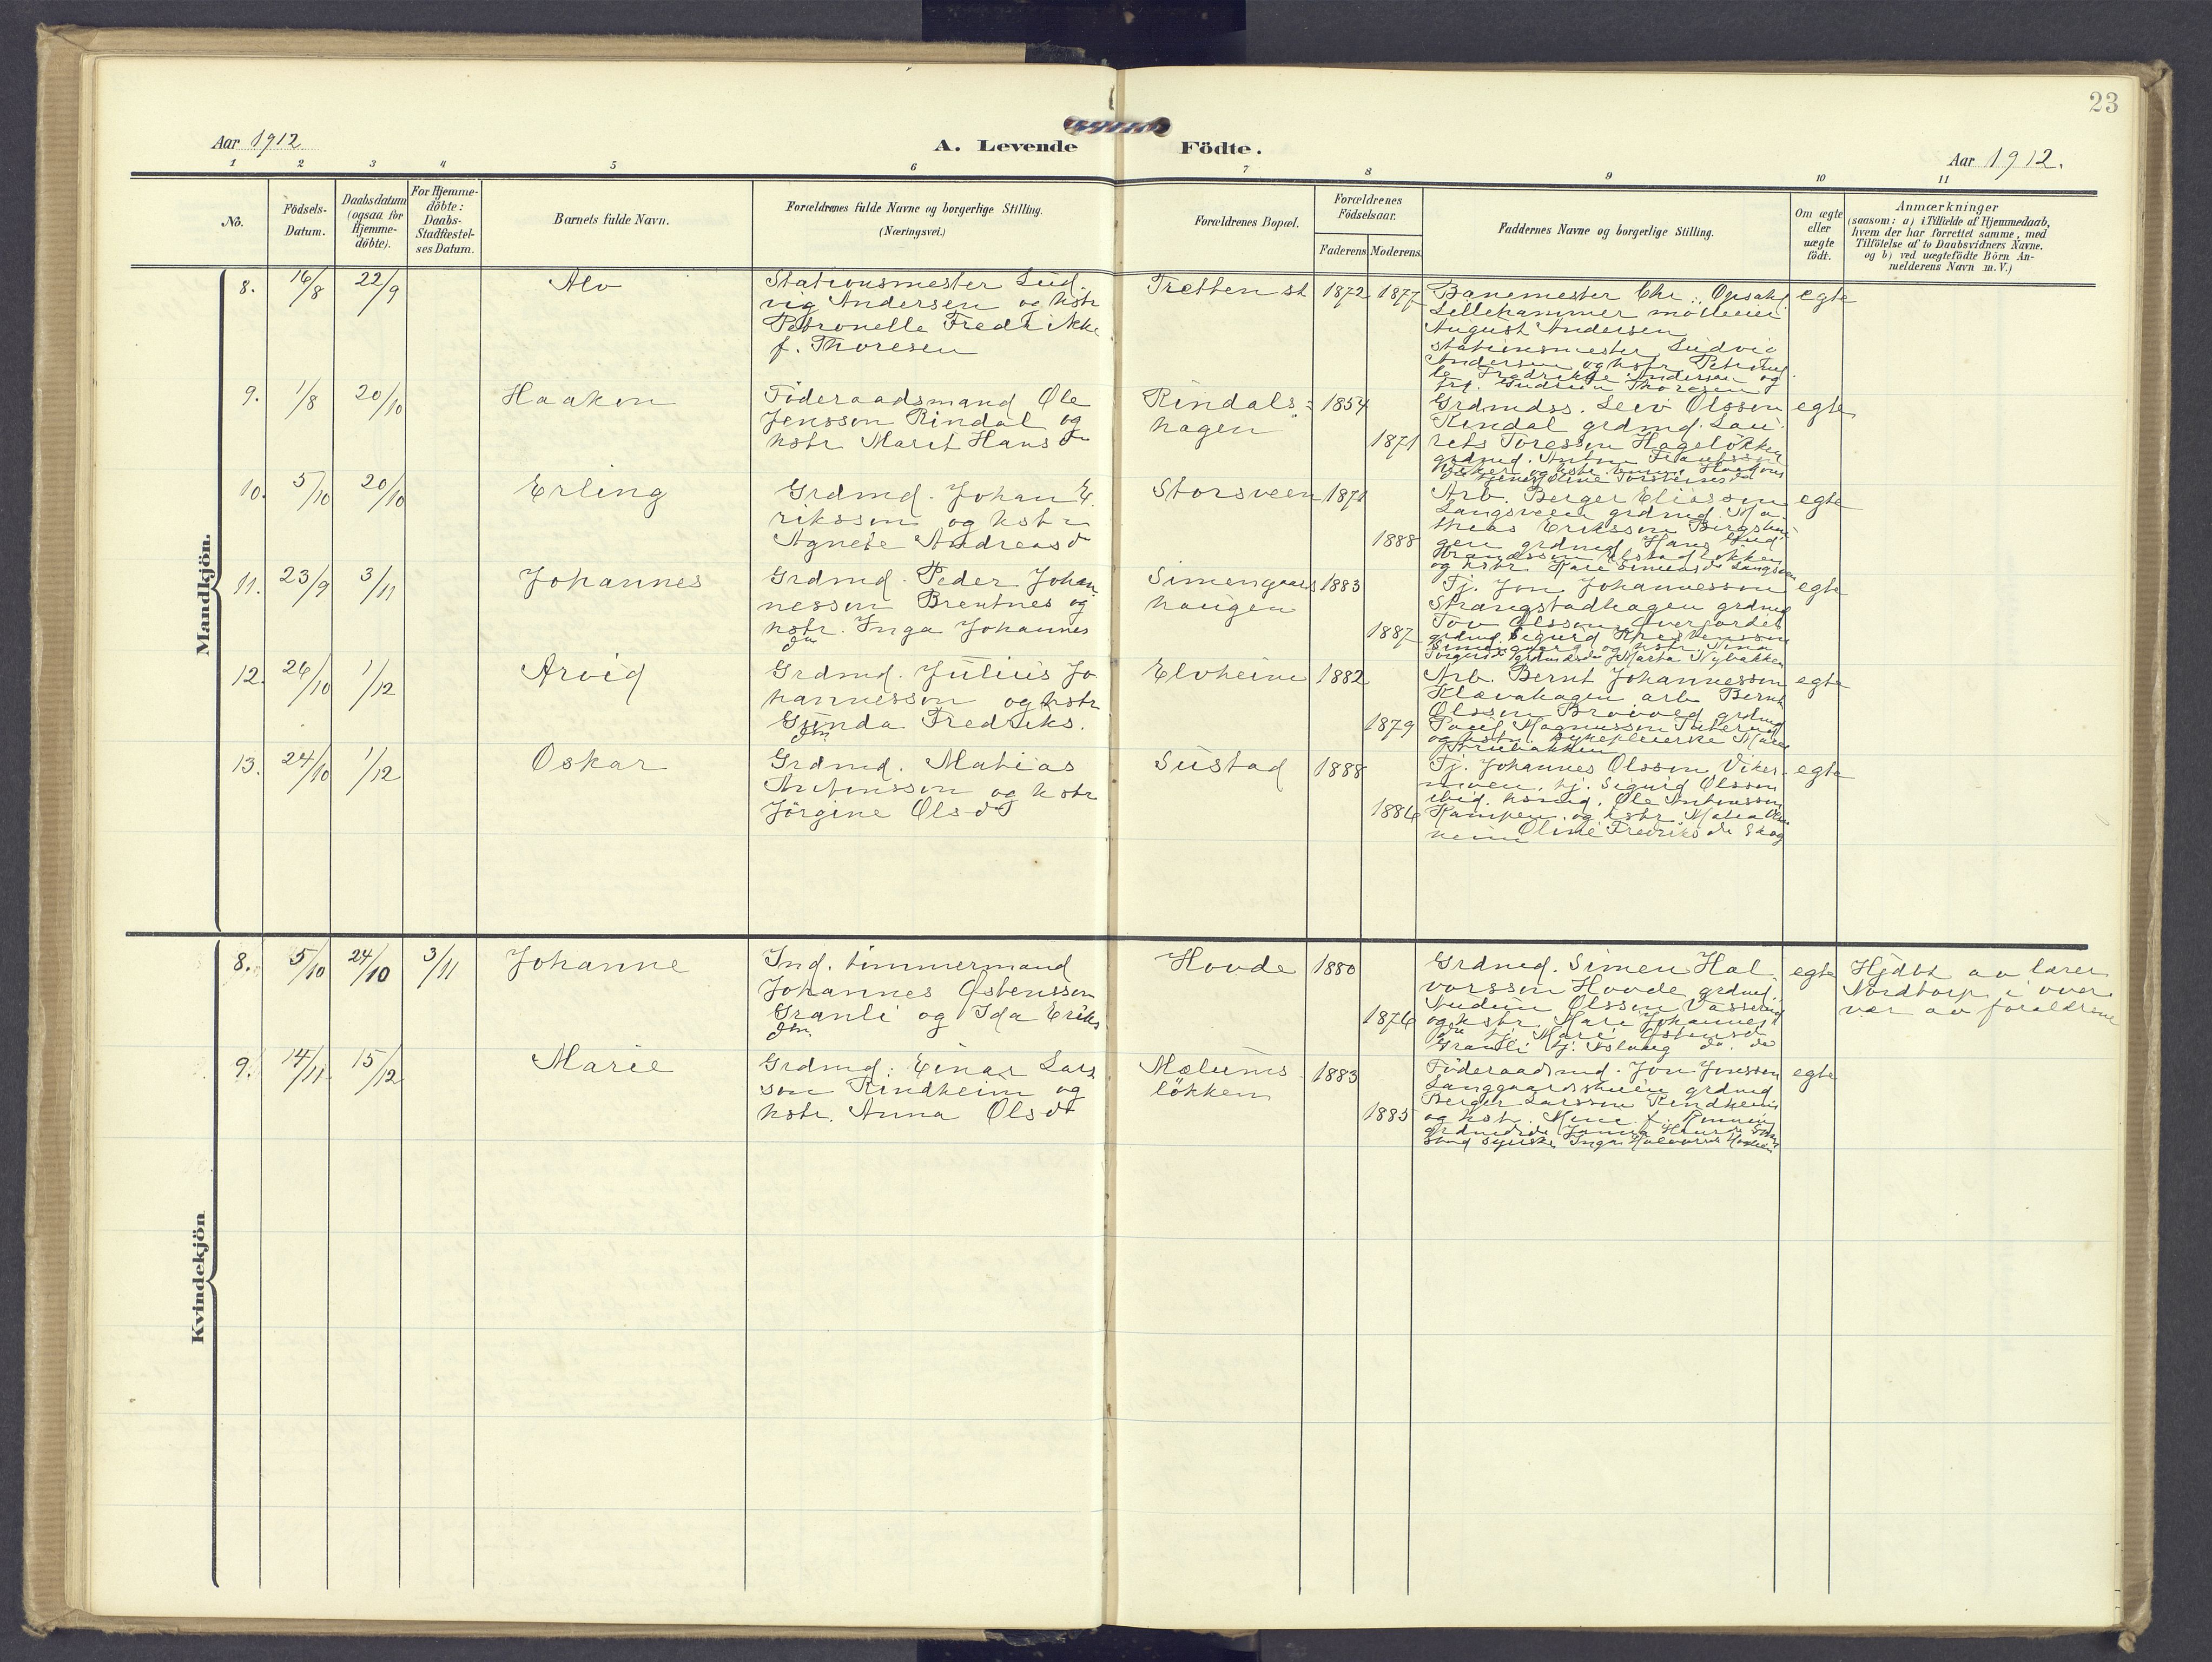 23
Aar 1912
A. Levende Födte.
Aar 1912.
1 2 3 4 5 6 7 8 9 10 11
No.
Födsels-
Datum.
Daabsdatum
(ogsaa for
Hjemme-
döbte).
For Hjemme-
döbte:
Daabs-
Stadfæstel-
ses Datum.
Barnets fulde Navn.
Forældrenes fulde Navne og borgerlige Stilling.
(Næringsvei.)
Forældrenes Bopæl.
Forældrenes
Födselsaar.
Faderens Moderens
Faddernes Navne og borgerlige Stilling.
Om ægte
eller
uægte
födt.
Anmærkninger
(saasom: a) i Tilfælde af Hjemmedaab,
hvem der har forrettet samme, med
Tilföielse af to Daabsvidners Navne,
og b) ved uægtefödte Börn An-
melderens Navn m. V.)
Mandkjön.
8. 16/8 22/9 Alv
Stationsmester Lud-
vig Andersen og kstr
Petronelle Fredrikke
f. Thoresen
Tretten st 1872 1877
Banemester Chr. Opsahl
Lillehammer mölleeier
August Andersen
stationsmester Ludvig
Andersen og kstr Petronel
le Fredrikke Andersen og
frk. Gudrun Thoresen
egte
9. 1/8 20/10 Haakon
Föderaadsmand Ole
Jensson Rindal og
kstr Marit Hansdr
Rindals-
hagen
1854
1871
Grdmdss. Leiv Olsson
Rindal grdmd. Lau-
rets Toresson Hagelökken
grdmd. Anton
egte
10. 5/10 20/10 Erling
Grdmd. Johan E-
riksson og kstr
Agnete Andreasdr
Storsveen 1871
1888
Arb. Berger Eliassen
Langsveen grdmd. Ma-
theas Eriksson Bergshau-
gen grdmd Hans Gud-
brandsson
og kstr Kari Simensdr Langsveen
egte
11. 23/9 3/11 Johannes
Grdmd. Peder Johan-
nesson Brentnes og
kstr. Inga Johannes
dr
Simengaards
haugen
1883
1887
Tj. Jon Johannesson
Strangstadhagen grdmd
Tov Olsson Överjordet
grdmd. Sigurd Kristensson
Simengaard og kstr. Nina
Marta Nybakken
egte
12. 26/10 1/12 Arvid
Grdmd. Julius Jo
hannesson og kstr
Gunda Fredriks.
dr
Elvheim 1882
1879
Arb. Bernt Johannesson
Klævahagen arb Bernt
Olsson Brovold grdmd
Magnusson
og kstr. sykepleierske Mari
egte
13. 24/10 1/12 Oskar
Grdmd. Matias
Antonsson og kstr
Jörgine Olsdr
Sustad 1888
1886
Tj. Johannes Olsson Viker-
moen, tj. Sigurd Olsson
ibid. Ole Antonsson
Kampen og kstr. Matea
Oline Fredriksdr Skog
heim
egte
Kvindekjön
8. 5/10 24/10 3/11 Johanne
Ind. tömmermand
Johannes Östensson
Granli og Ida Eriks
dr
Hovde 1880
1876
Grdmd. Simen Hal-
vorsson Hovde grdmd.
Audun Olsson
og kstr Kari Johannes
dr tj. Mari Östensdr
Granli tj. Aslaug do. do
egte
Hjdbt av lærer
Nordtorp i over
vær av forældrene
9. 14/11 15/12 Marie
Grdmd. Einar Lars
son Rindheim og
kstr. Anna Olsdr
Mælums-
lökken
1883
1885
Föderaadsmd. Jon Jonsson
grdmd
Berger Larsson Rindheim
og kstr.
egte